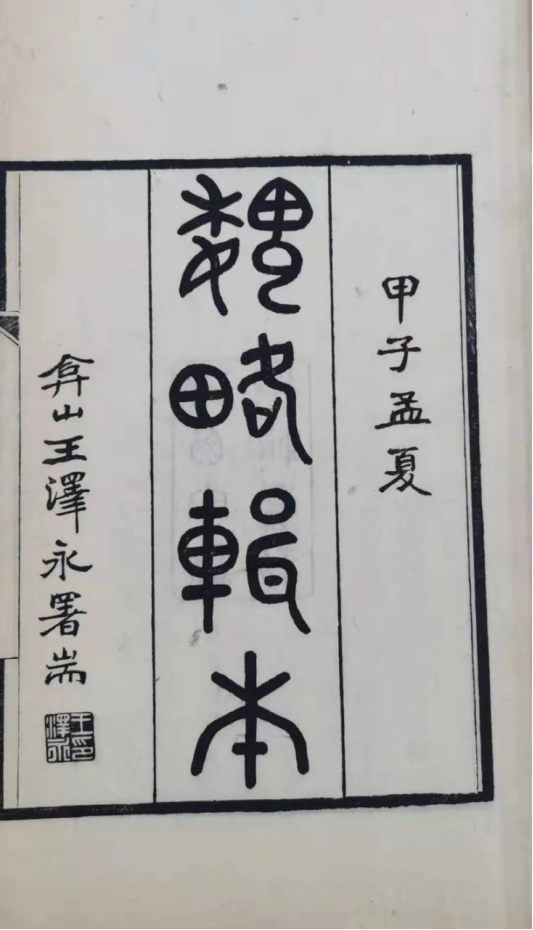 甲子孟夏
魏略輯本
弇山王澤永署耑
王澤永印